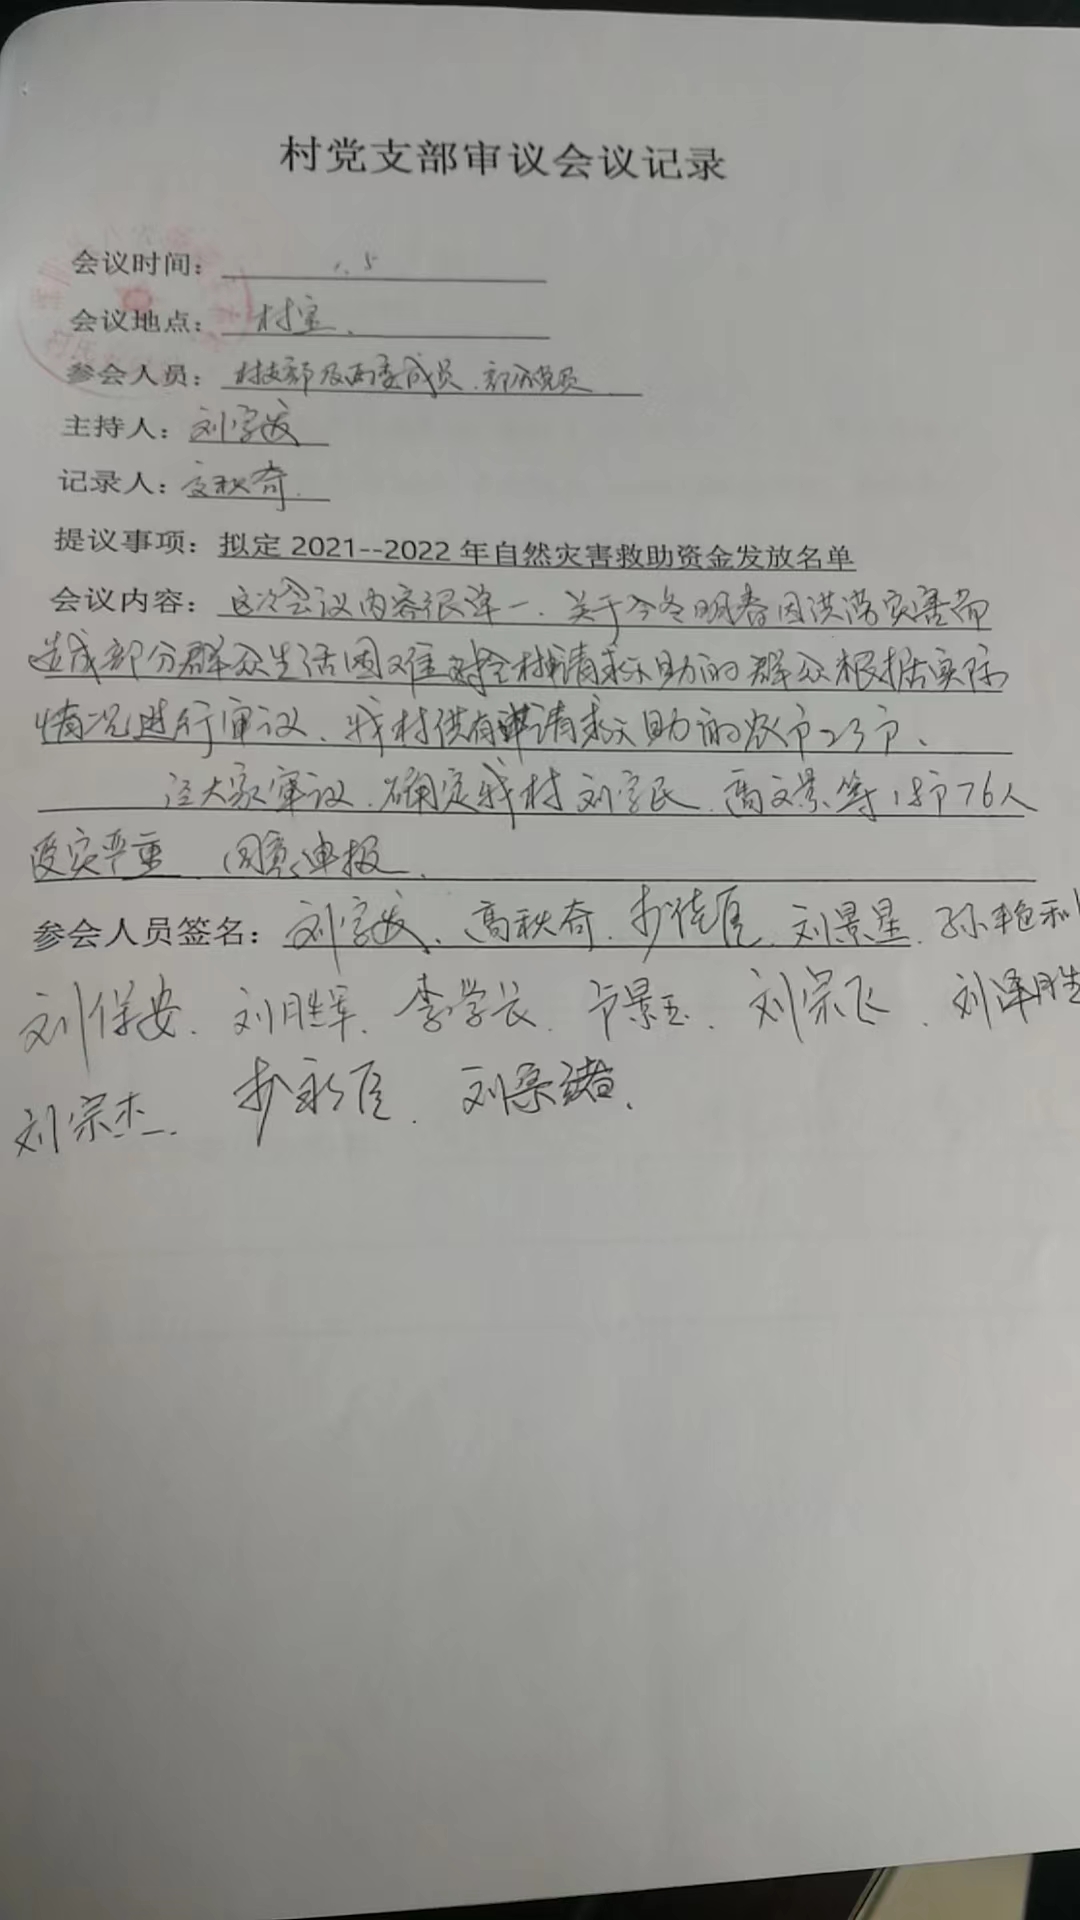 村党支部审议会议记录
会议时间：
会议地点：村室.
参会人员：村支部及两委成员、部分党员
主持人：刘字波
记录人：高秋奇.
提议事项：拟定 2021--2022 年自然灾害救助资金发放名单
会议内容：这次会议内容很单一、关于今冬明春因洪涝灾害而
造成部分群众生活困难对全村申请求助的群众根据实际
情况进行审议、我村供有申请求助的农户23户、
经大家审议、确定我村刘字民、高文景等18户76人
受灾严重、同意申报.
参会人员签名：刘字波、高秋奇、刘景星、孙艳利
刘保安、刘胜军、李学长、刘宗飞、刘泽胜
刘宗杰、